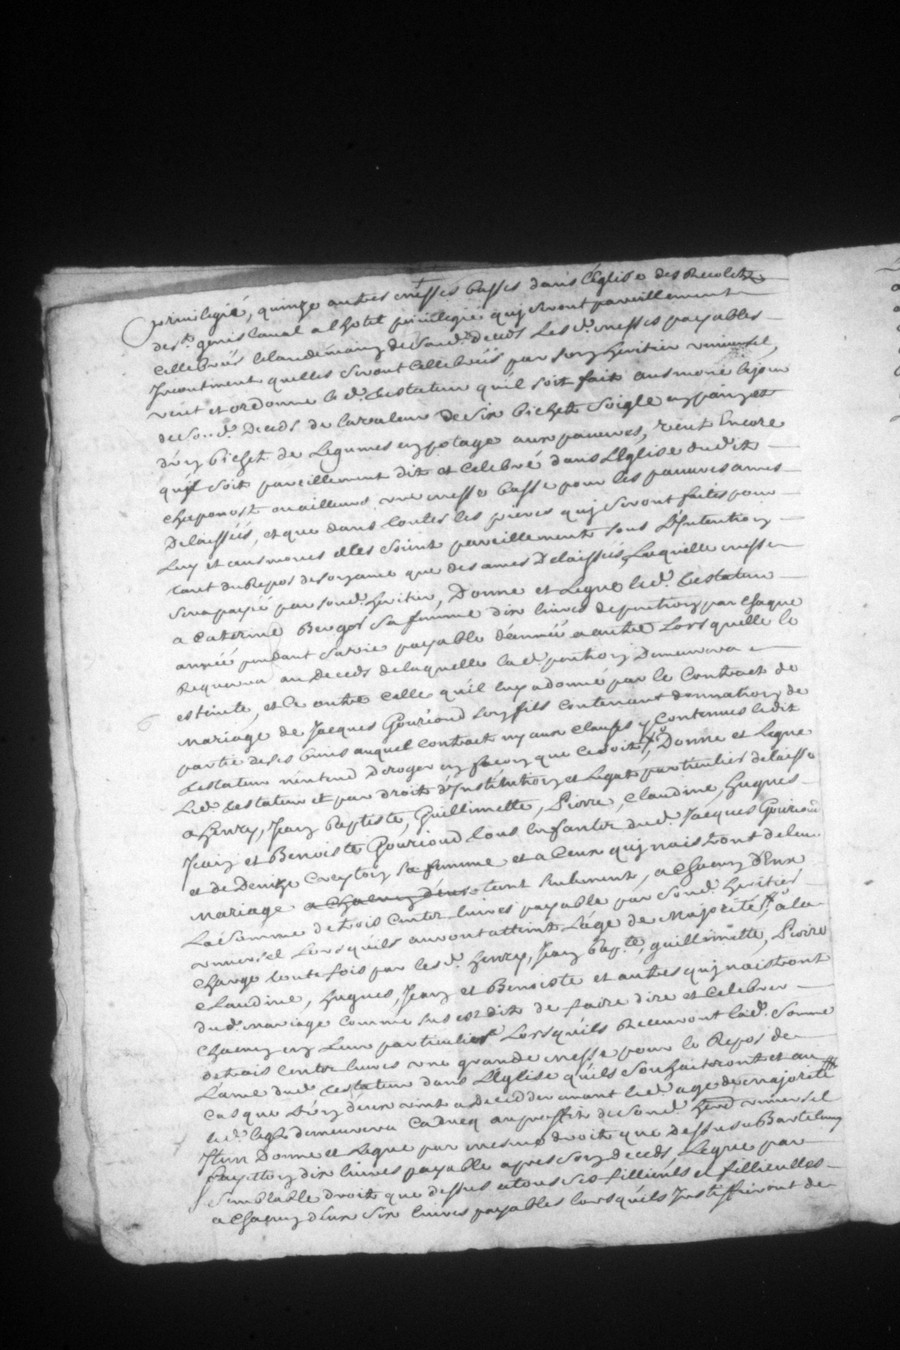 privilegiée, quinze autres messes basses dans l'Eglise des Recolets
de st. genis Laval a l'hotel privilegié quj seront pareillement
cellebrés le landemaing de sond. deceds les d. messes payables
Incontinent quelles seront cellebrés par son heritier universel,
veut et ordonne le d. testateur quil soit fait ausmone le jour
de so.. d. deceds de la valeur de six bichets soigle en pain et
d'un bichet de Legumes en potage aux pauvres, veut Encore
quil soit pareillement dit et celebré dans L'Eglise dudit
chaponost ou ailleurs une messe basse pour les pauvres ames
Delaisséés, et que dans toutes les prieres quj seront faites pour
Luy et ausmones elles soint pareillement sous L'Intention
tant du Repos de son ame que des ames Delaisséés, Laquelle messe
sera payéé par sond. heritier, Donne et Legue le d. testateur
a Caterine Berger sa femme dix livres de pention par chaque
année pendant sa vie payable d'année a autre Lors quelle le
Requerera au Deceds de laquelle lad. pention Demeurera
estinte, et ce outre celle quil luy a donné par le Contract de
Mariage de Jacques Gourioud son fils contenant donnation de
partie de ses biens auquel contract ny aux clauses y contenues ledit
testateur n'entend Deroger en façon que ce soit, Donne et Legue
Led. testateur et par droit d'Institution et Legat particulier delaisse
a henry, Jean baptiste, Guillimette, Pierre, Claudine, hugues
Jean et Benoiste Gourioud tous enfants dud. Jacques Gourioud
et de Denize Creyton sa femme et a Ceux quj naistront de leur
Mariage a chacun d'eux tant seulement, a chacun d'Eux
La somme de trois cents livres payable par sond. heritier
universel Lors quils auront atteint L'age de Majorité, a la
charge toute fois par les d. henry, Jean bapte, guillimette, Pierre
Claudine, hugues, Jean et Benoiste et autres quj naistront
dud. Mariage comme sus est dit de faire dire et celebrer
chacun en Leur particulier Lors quils Recevront lad. somme
de trois cents livres une grande messe pour le Repos de
L'ame dud. testateur dans L'Eglise quils souhaitront et au
cas que L'un d'eux vint a deceder avant led. age de majorité
led. legs demeurera caducq au proffit de sond. hered universel
Item Donne et Legue par mesme droit que dessus a Bartelemy
fayetton dix livres payable apres son deceds, Legue par
semblable droit que dessus a tous ses fillieuls et fillieulles
a chacun d'eux six livres payables lors quils Justiffieront de